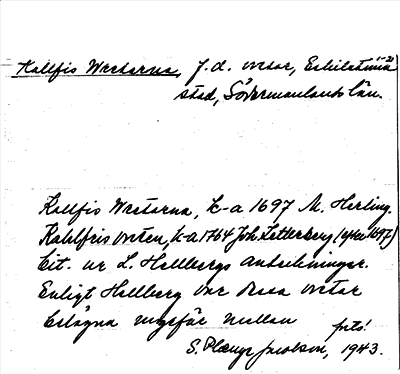 Kallfis Wretarna, f.d. vretar, Eskilstuna
stad, Södermanlands län.
Kallfis Wretarna, k-a 1697 M. Herling.
Kahlfris vreten, k-a 1764 Joh. Zetterberg (efter 1697)
Cit. ur L. Hellbergs anteckningar.
Enligt Hellberg var dessa vretar
belägna ungefär mellan
S. Plænge Jacobson, 1943.